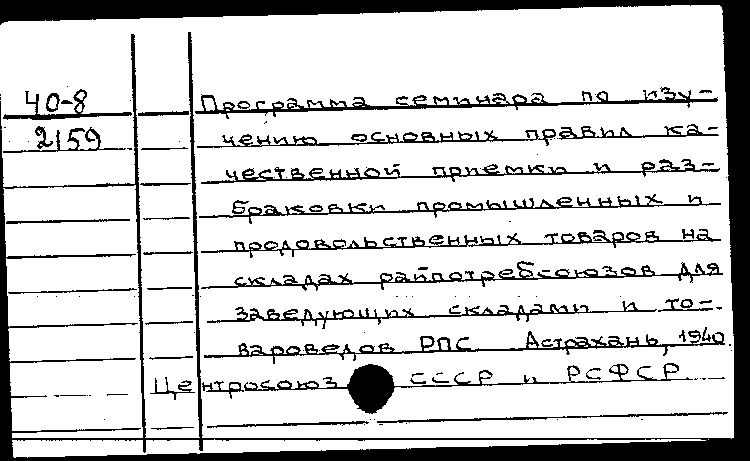 40-8
2159
Программа семинара по изу-
чению основных правил ка-
чественной приемки и раз-
браковки промышленных и
продовольственных товаров на
складах райпотребсоюзов для
заведующих складами и то-
вароведов РПС Астрахань, 1940
Центросоюз СССР и РСФСР